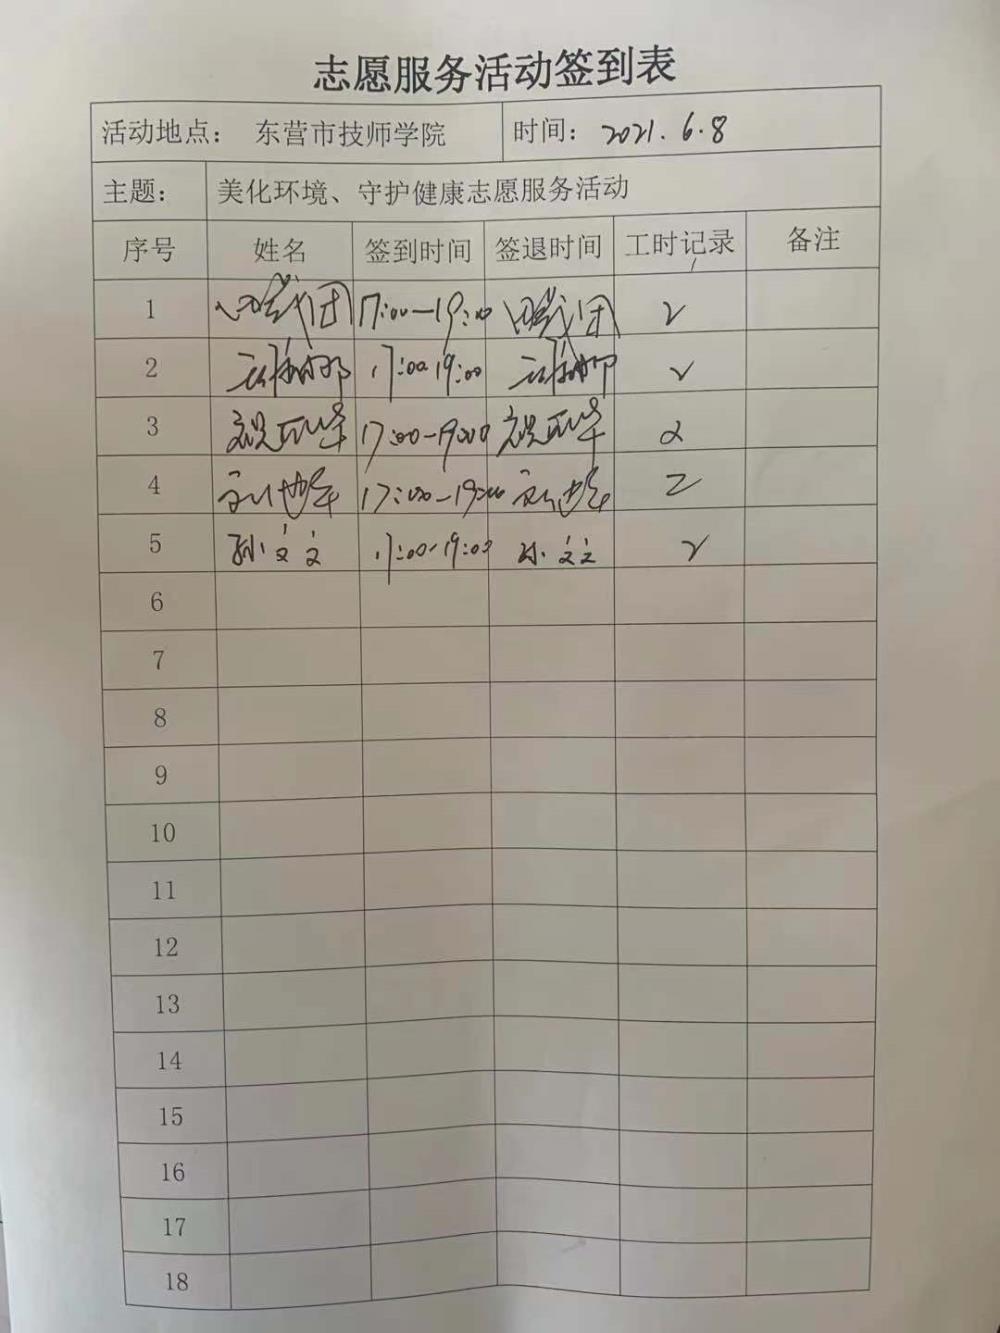 志愿服务活动签到表
活动地点： 东营市技师学院 时间：2021.6.8
主题： 美化环境、守护健康志愿服务活动
序号 姓名 签到时间 签退时间 工时记录 备注
1 17:00—19:00 2
2 17:00 19:00 2
3 17:00-19:00 2
4 17:00-19:00 2
5 孙文文 17:00-19:00 孙文文 2
6
7
8
9
10
11
12
13
14
15
16
17
18